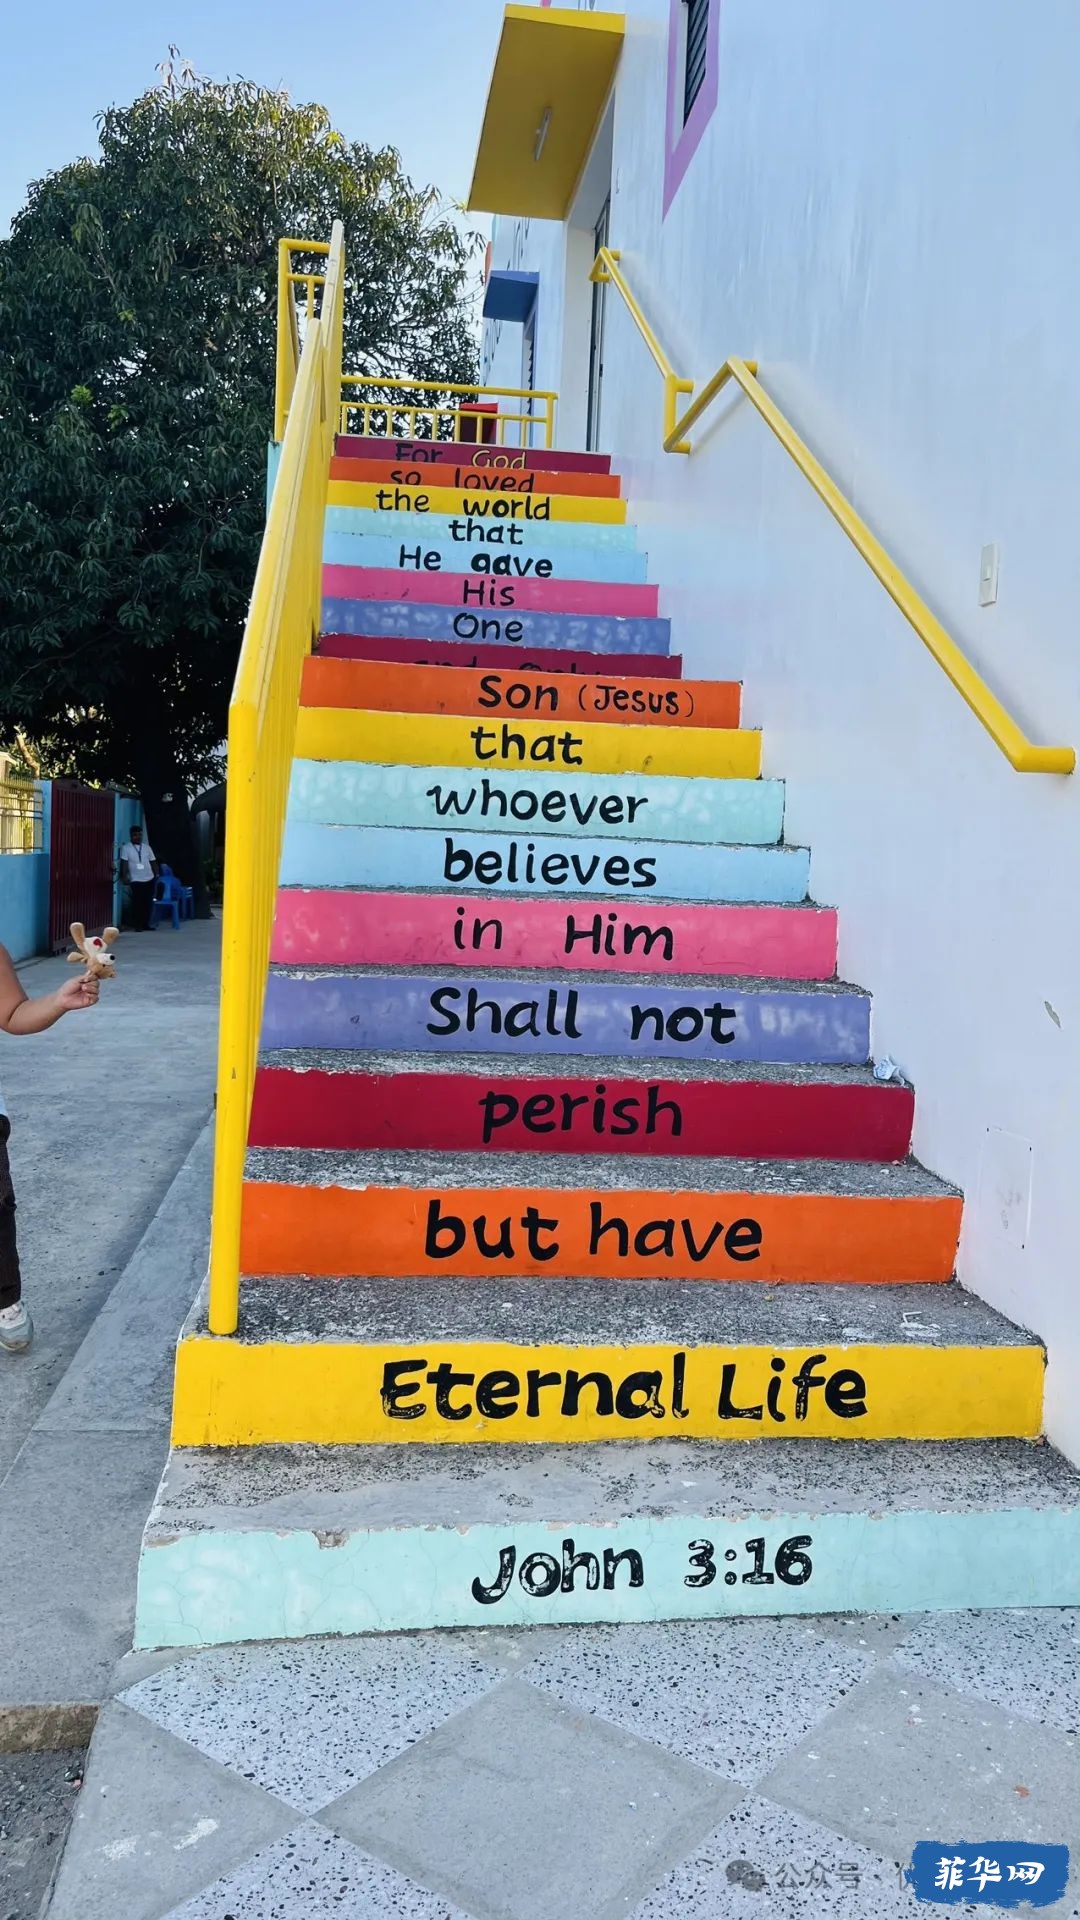 For God
so loved
the world
that
He gave
His
One
and only
Son (Jesus)
that
whoever
believes
in Him
Shall not
perish
but have
Eternal Life
John 3:16
公众号
菲华网